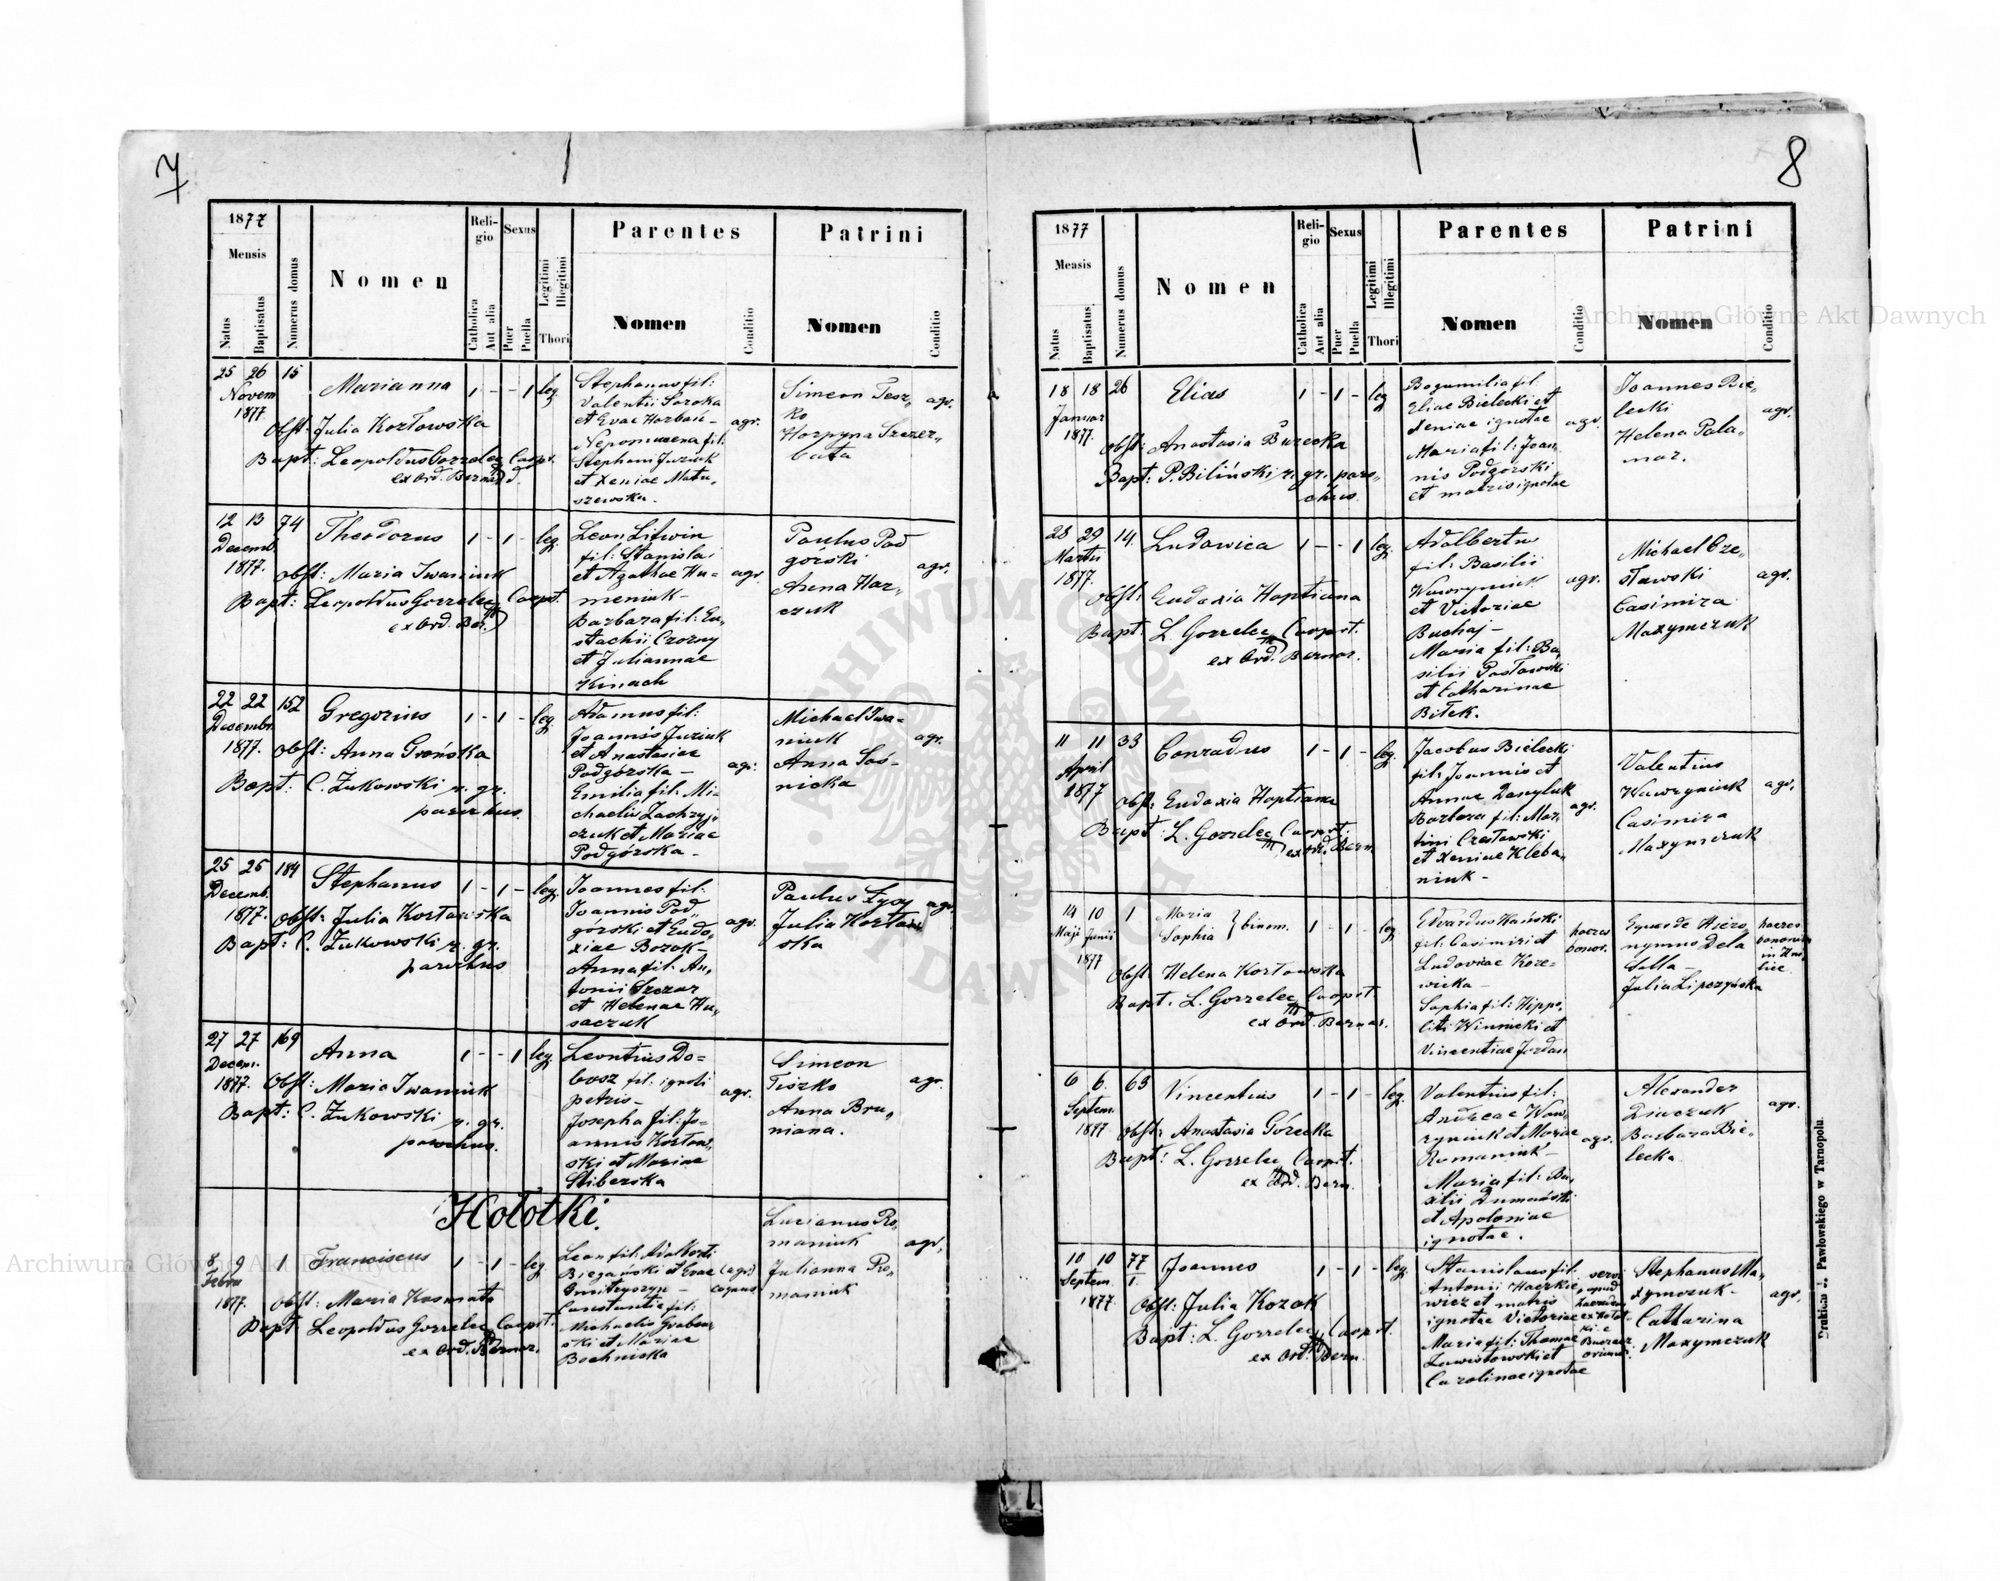 7
1877
Mensis
Natus
Baptisatus
Numerus domus
Nomen
Religio
Catholica
Aut alia
Sexus
Puer
Puella
Legitimi
Illegitimi
Thori
Parentes
Nomen
Conditio
Patrini
Nomen
Conditio
25 26 15 Marianna 1 - - 1 leg.
Novem
1877
Obst: Julia Kozłowska
Bapt: Leopoldus Gorzelec Coop.
ex Ord. Bernard.
Stephanus fil:
Valentii Soroka
et Evae Horbań -
Nepomucena fil:
Stephani Juziuk
et Xeniae Matu„
szewska.
agr.
Simeon Tesz„
ko
Horpyna Szczer„
bata
agr.
12 13 74 Theodorus 1 - 1 - leg.
Decemb
1877.
Obst: Maria Iwaniuk
Bapt: Leopoldus Gorzelec Coopt.
ex Ord. Ber.
Leon Litwin
fil: Stanislai
et Agathae Hu=
meniuk -
Barbara fil: Eu„
stachii Czorny
et Juliannae
Kinach
agr.
Paulus Pod
górski
Anna Har„
czuk
agr.
22 22 152 Gregorius 1 - 1 - leg.
Decembr.
1877.
Obst: Anna Grońska
Bapt: C. Żukowski r. gr.
parochus.
Adamus fil:
Joannis Juziuk
et Anastasiae
Podgórska -
Emilia fil: Mi„
chaelis Zachryj„
czuk et Mariae
Podgórska -
agr.
Michael Iwa-
niuk
Anna Soś-
nicka
agr.
25 26 184 Stephanus 1 - 1 - leg.
Decemb.
1877.
Obst: Julia Kozłowska
Bapt: C. Żukowski r. gr.
parochus
Joannes fil:
Joannis Pod„
górski et Eudo„
xiae Bozok -
Anna fil: An„
tonii Szczur
et Helenae Hu„
saczuk
agr.
Paulus Łysy
Julia Kozłow
ska
agr.
27 27 169 Anna 1 - - 1 leg.
Decem.
1877.
Obst: Maria Iwaniuk
Bapt: C. Żukowski r. gr.
parochus.
Leontius Do=
bosz fil: ignoti
patris -
Josepha fil: Jo-
annis Kozłow„
ski et Mariae
Stiberska
agr.
Simeon
Tiszko
Anna Bru„
niana.
agr.
Hołotki.
8 9 1 Franciscus 1 - 1 - leg.
Febru
1877.
Obst: Maria Kosmata
Bapt Leopoldus Gorzelec Coopt.
ex Ord. Bernar.
Leon fil: Adalberti
Biegański et Evae
Dmitryszyn -
Constantia fil:
Michaelis Grabow„
ski et Mariae
Bochnicka
(agr.)
coquus
Lucianus Ro„
maniuk
Julianna Ro„
maniuk
agr.
8
1877
Mensis
Natus
Baptisatus
Numerus domus
Nomen
Religio
Catholica
Aut alia
Sexus
Puer
Puella
Legitimi
Illegitimi
Thori
Parentes
Nomen
Conditio
Patrini
Nomen
Conditio
18 18 26 Elias 1 - 1 - leg
Januar
1877.
Obst: Anastasia Burecka
Bapt: P. Biliński r. gr. paro„
chus.
Eliae Bielecki et
Xeniae ignotae
Maria fil: Joan„
nis Podgórski
et matris ignotae
agr.
Joannes Bie„
lecki
Helena Pala„
mar.
agr.
28 29 14. Ludowica 1 - - 1 leg.
Martii
1877.
Obst: Eudoxia Hoptiana
Bapt: L. Gorzelec Coopt.
ex Ord. Bernar.
Adalbertus
fil: Basilii
Wawryniuk
et Victoriae
Buchaj -
Maria fil: Ba„
silii Pasławski
et Catharinae
Bilek.
agr.
Michael Cze„
sławski
Casimira
Maxymczuk
agr.
11 11 33 Conradus 1 - 1 - leg.
April
1877
Obst: Eudoxia Hoptiana
Bapt: L. Gorzelec Coopt.
ex Ord. Bern.
Jacobus Bielecki
fil: Joannis et
Annae Danyluk
Barbara fil: Mar„
tini Czesławski
et Xeniae Kleba„
niuk -
agr.
Valentius
Wawryniuk
Casimira
Maxymczuk
agr.
14 10 1 Maria
Sophia } binom. 1 - - 1 leg
Maji Junii
1877
Obst: Helena Kozłowska
Bapt: L. Gorzelec Coopt.
ex Ord. Bernar.
Edvardus Hański
fil: Casimiri et
Ludovicae Korze=
wicka -
Sophia fil: Hippo„
liti Winnicki et
Vincentiae Jordan
haeres
bonor.
Eques de Hiero„
nymus Dela
Scala -
Julia Lipczyńska
haeres
bonorum
6 6. 63 Vincentius 1 - 1 - leg.
Septem.
1877
Obst: Anastasia Górecka
Bapt: L. Gorzelec Coopt.
ex Ord. Bern.
Valentius fil:
Andreae Waw„
ryniuk et Mariae
Romaniuk -
Maria fil: Ba„
silii Dumański
et Apoloniae
ignotae.
agr.
Alexander
Diaczuk
Barbara Bie„
lecka
agr.
10 10 77 Joannes 1 - 1 - leg.
Septem. 1.
1877
Obst: Julia Kozak
Bapt: L. Gorzelec Coopt.
ex Ord. Bern.
Stanislaus fil:
Antonii Haczkie„
wicz et matris
ignotae Victoriae
Maria fil: Thomae
Zawistowski et
Carolinae ignotae
Stephanus Ma„
xymczuk -
Catharina
Maxymczuk
agr.
Drukiem J. Pawłowskiego w Tarnopolu.
Archiwum Główne Akt Dawnych
Archiwum Główne Akt Dawnych
ARCHIWUM GŁÓWNE AKT DAWNYCH